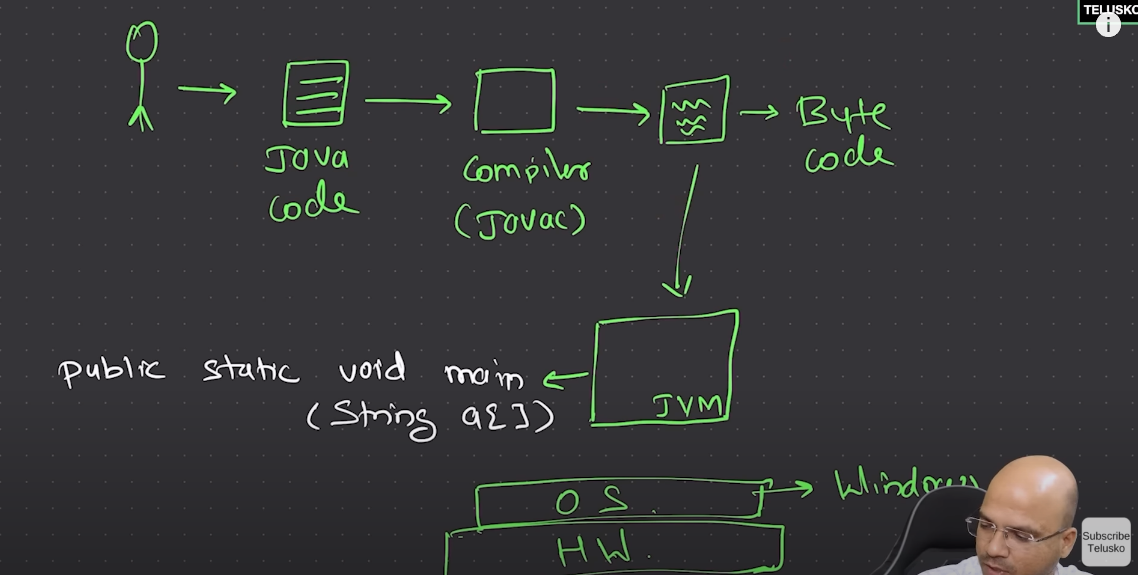 TELUSKO
Java
code
Compiler
(Javac)
Byte
code
public static void main
(String a[])
JVM
OS
Windows
HW.
Subscribe
Telusko